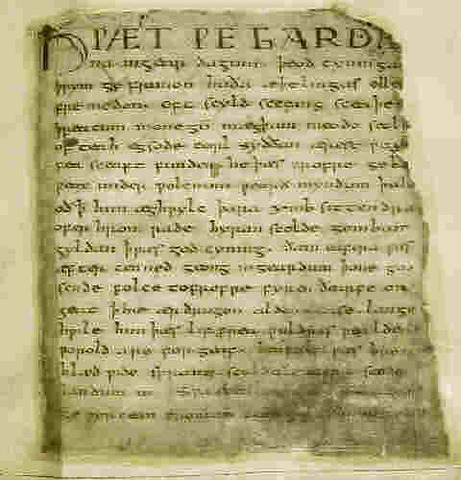 HǷÆT ǷE GARDE
na ingear dagum. þeod cyninga
þrym ge frunon huða æþelingas elle
fremedon. oft scyld scefing sceaþe
þreatum monegū mægþum meodo setl
of teah egsode eorl syððan ærest ƿear
fea sceaft funden he þæs frofre geba
ƿeox under ƿolcnum ƿeorð myndum þah
oð þ him æghƿylc þara ymb sittendra
ofer hron rade hyran scolde gomban
gyldan þ ƿæs god cyning. ðæm eafera ƿæs
æfter cenned geong ingeardum þone god
sende folce tofrofre fyren ðearfe on
geat þ hie ær drugon aldor ase. lange
hƿile him þæs lif frea ƿuldres ƿealdend
ƿorold are for geaf. beoƿulf ƿæs breme
blæd ƿide sprang scyldes eafera scede
landum in. Sƿa sceal
ge ƿyrcean fromum